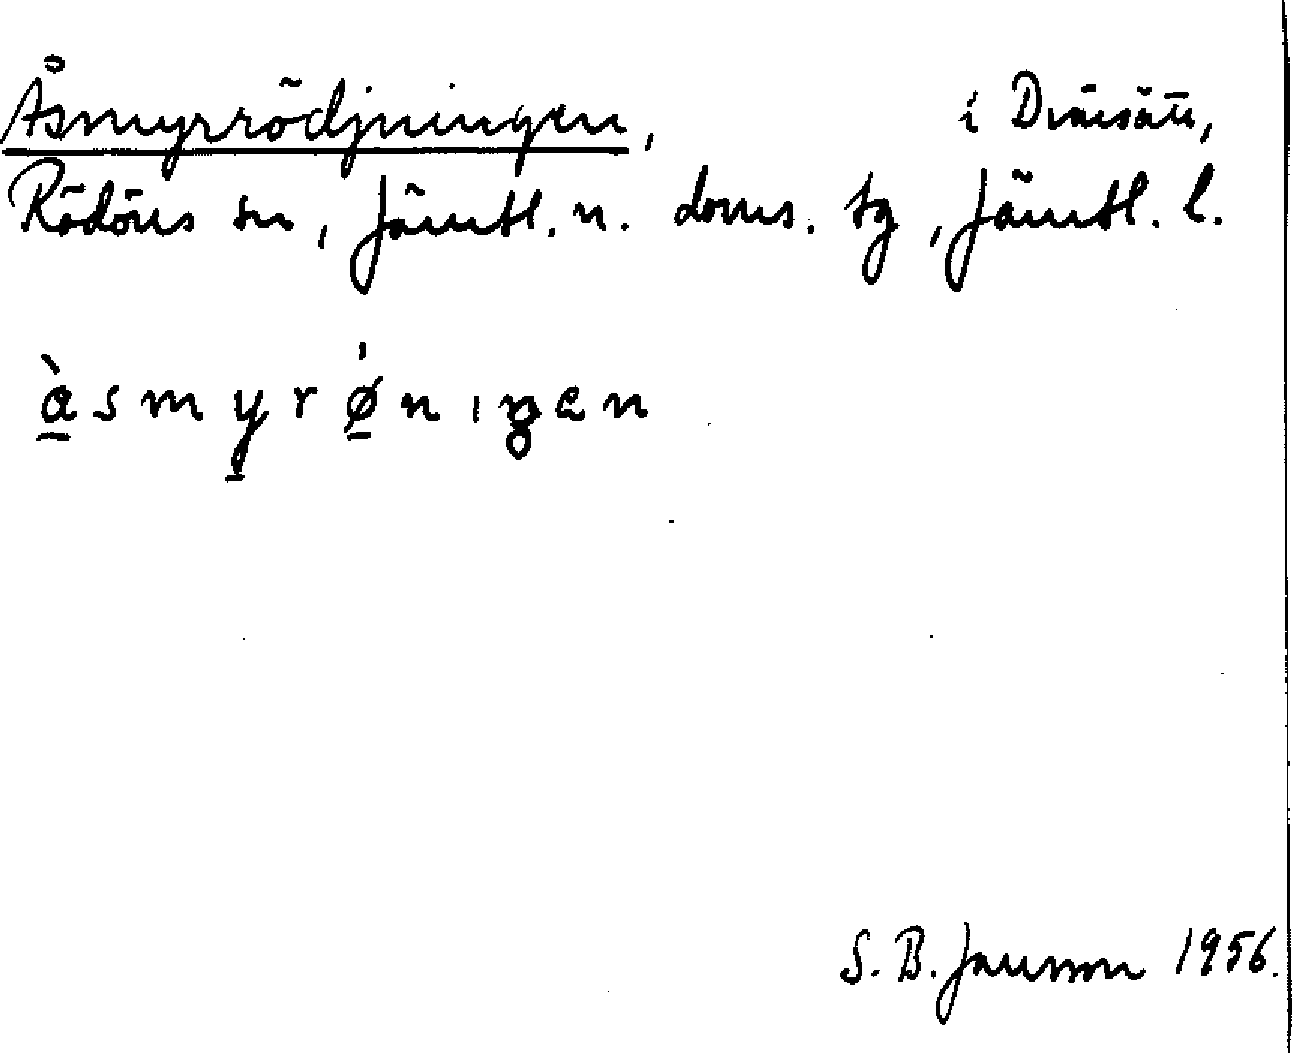 Åsmyrrödjningen, i Dvärsätt,
Rödöns sn, Jämtl. n. doms. tg, Jämtl. l.
àsmyrǿnıŋen
S. B. Jansson 1956.